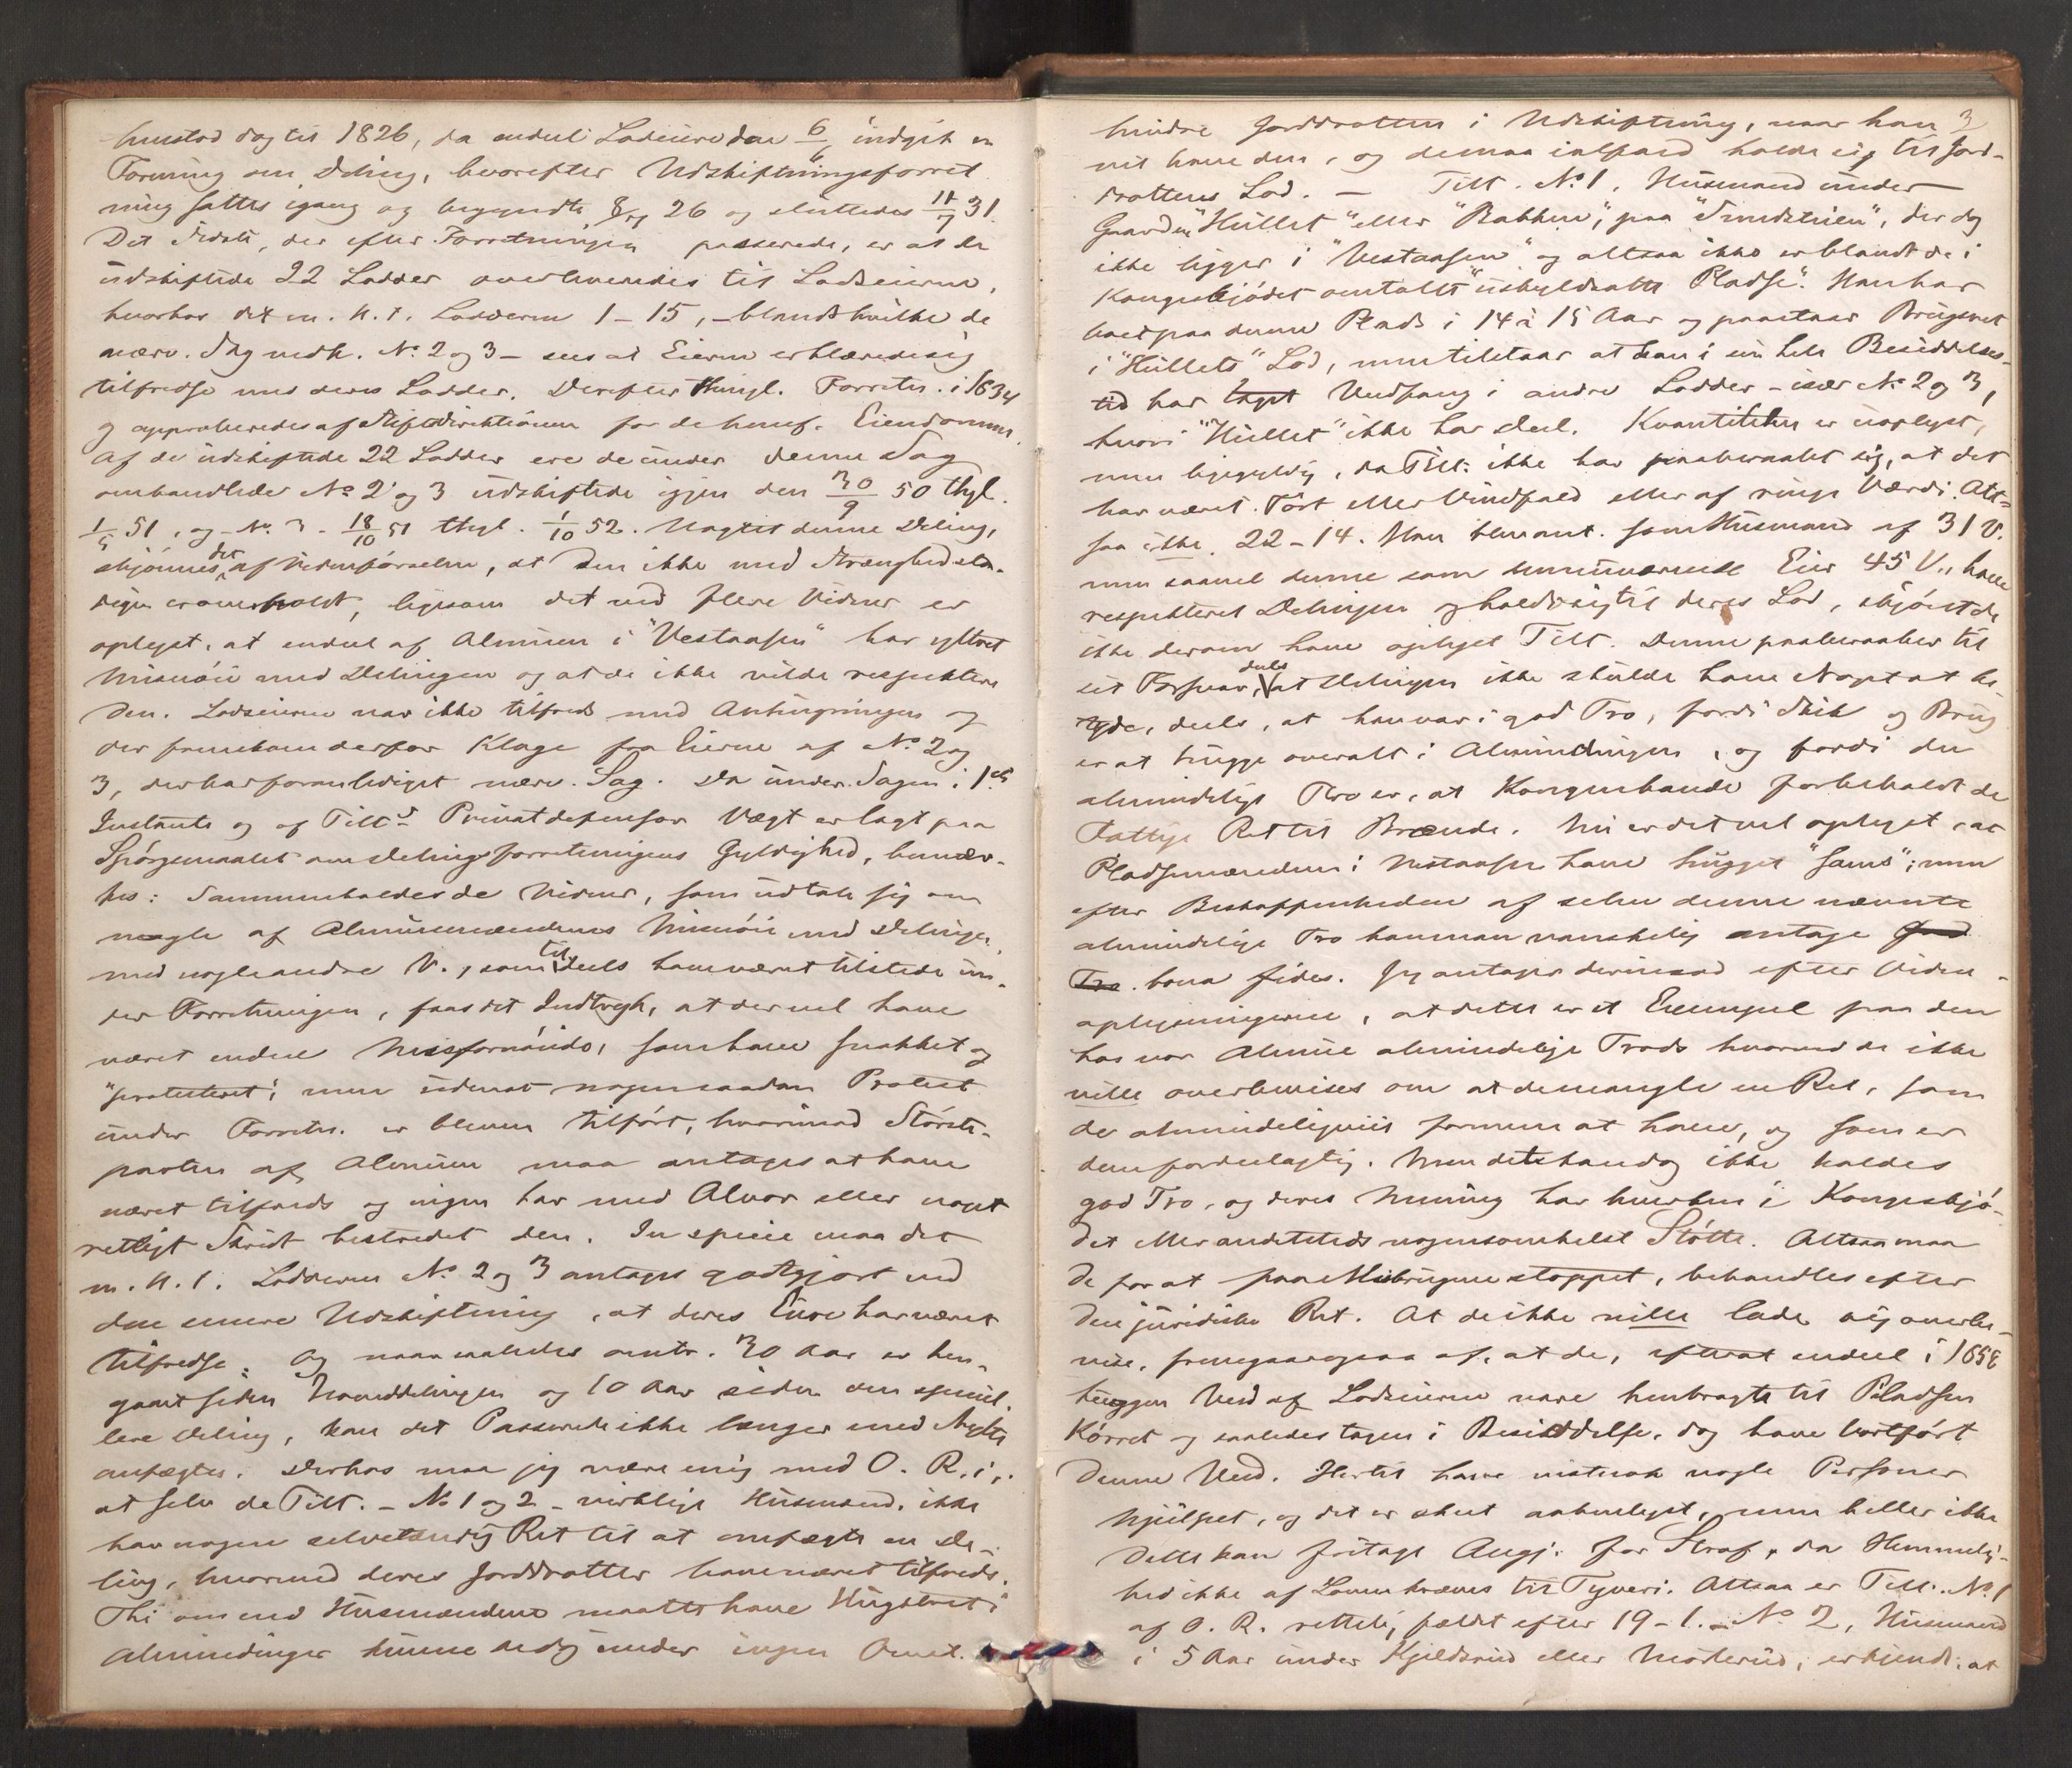 hentod dog til 1826, da endeel Lodeiere den 6/6 indgik en
Forening om Deling, hvorefter Udskiftningsforret
ning sattes igang og begyndte 8/7 26 og sluttedes 11/7 31.
Det Sidste, der efter Forretningen passerede, er at de
udskiftede 22 Lodder overleveredes til Lodseierne,
hvorhos det m. H. t. Lodderne 1-15, - blandt hvilke de
nærv. Sag vedk. No. 2 og 3 - sees at Eierne erklærede sig
tilfredse med deres Lodder. Derefter thingl. Forretn. i 1834
og approberedes af Stiftsdirektionen for de benef. Eiendomme.
Af de udskiftede 22 Lodder ere de under denne Sag
omhandlede No 2 og 3 udskiftede igjen den 30/9 50 thgl.
1/5 51, og No. 3 - 18/10 51 thgl. 1/10 52. Uagtet denne Deling,
skjønnes det af Vidneførselen, at den ikke med Strænghed sta-
digen er overholdt, ligesom det ved flere Vidner er
oplyst, at endeel af Almuen i "Vestaasen" har yttret
Misnøie med Delingen og at de ikke vilde respektere
den. Lodseierne var ikke tilfreds med Anhugningen og
der fremkom derfor Klage fra Eierne af No. 2 og
3, der har foranlediget nærv. Sag. Da under Sagen i 1ste
Instants og af Tilts Privatdefensor Vægt er lagt paa
Spørgsmaalet om Delingsforretningens Gyldighed, bemær-
kes: Sammenholdes de Vidner, som udtale sig om
nogle af Almuesmændenes Misnøie med Delingen,
med nogle andre V., som tildeels have været tilstede un-
der Forretningen, faaes det Indtryk, at der vel have
været endeel Misfornøiede, som have snakket og
"protesteret", men uden at nogen saadan Protest
under Forretn. er bleven tilført, hvorimod Største-
parten af Almuen maa antages at have
været tilfreds og ingen har med Alvor eller noget
retligt Skridt bestredet den. In specie maa det
m. H. t. Lodderne No. 2 og 3 antages godtgjort ved
den senere Udskiftning, at deres Eiere har været
tilfredse: Og naar saaledes omtr. 30 Aar er hen-
gaaet siden Hoveddelingen og 10 Aar siden den speciel-
lere Deling, kan det Passerede ikke længer med Nytte
anfægtes. Derhos maa jeg være enig med O. R. i,
at selv de Tilt. - No 1 og 2 - virkelige Husmænd, ikke
har nogen selvstændig Ret til at anfægte en De-
ling, hvormed deres Jorddrotter have været tilfreds.
Thi om end Husmændene maatte have Hugstret i
Almindinger kunne de dog under ingen Omst.
3
hindre Jorddrotten i Udskiftning, naar han
vil have den, og de maa ialfald holde sig til Jord-
drottens Lod. - Tilt. No. 1, Husmand under
Gaarden "Hullet" eller "Bakken", paa "Smedstuen", der dog
ikke ligger i "Vestaasen" og altsaa ikke er blandt de i
Kongeskjødet omtalte "uskyldsatte Pladse". Han har
boet paa denne Plads i 14 à 15 Aar og paastaar Brugsret
i "Hullets" Lod, men tilstaar at han i sin hele Besiddelses-
tid har taget Vedfang i andre Lodder - især No. 2 og 3,
hvori "Hullet" ikke har Deel. Kvantiteten er uoplyst,
men ligegyldig, da Tilt. ikke har paaberaabt sig, at det
har været Tørt eller Vindfald eller af ringe Værdi. Alt-
saa ikke 22-14. Han blev ant. som Husmand af 31 V.
men saavel denne som nuværende Eier 45 V., have
respekteret Delingen og holdt sig til deres Lod, skjønt de
ikke derom have oplyst Tilt. Denne paaberaaber til
sit Forsvar, deels at Delingen ikke skulde have Noget at be-
tyde, deels, at han var i god Tro, fordi Skik og Brug
er at hugge overalt i Almindingen, og fordi den
almindelige Tro er, at Kongen havde forbeholdt de
Fattige Ret til Brænde. Nu er det vel oplyst, at
Pladsmændene i Vestaasen have hugget "sams"; men
efter Beskaffenheden af selve denne nævnte
almindelige Tro kan man vanskelig antage God
Tro. bona fides. Jeg antager derimod efter Vidne-
oplysningerne, at dette er et Exempel paa den
hos vor Almue almindelige Trods hvormed de ikke
ville overbevises om at de mangle en Ret, som
de almindeligviis formene at have, og som er
dem fordeelagtig. Men det kan dog ikke kaldes
god Tro, og deres Mening har hverken i Kongeskjø-
det eller andetsteds nogensomhelst Støtte. Altsaa maa
de for at faae Misbrugene stoppet, behandles efter
den juridiske Ret. At de ikke ville lade sig overbe-
vise, fremgaar ogsaa af, at de, efterat endeel i 1858
huggen Ved af Lodseierne vare henbragte til Pladsen
Kørret og saaledes tagen i Besiddelse, dog have bortført
denne Ved. Hertil have vistnok nogle Personer
hjulpet, og det er skeet aabenlyst, men heller ikke
dette kan fritage Angj. for Straf, da Hemmelig-
hed ikke af Loven kræves til Tyveri. Altsaa er Tilt. No. 1
af O. R. rettelig fældt efter 19-1. - No 2, Husmand
i 5 Aar under Kjeldsrud eller Mosterud, erkjendt, at